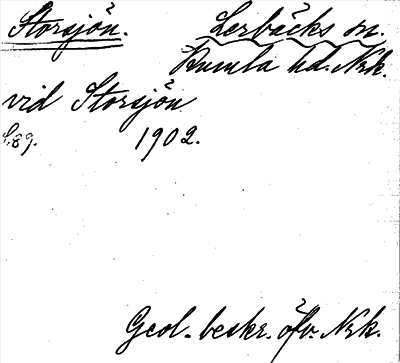 Storsjön.
Lerbäcks sn.
Kumla hd. Nrk.
vid Storsjön
S. 89. 1902.
Geol. beskr. öfv. Nrk.